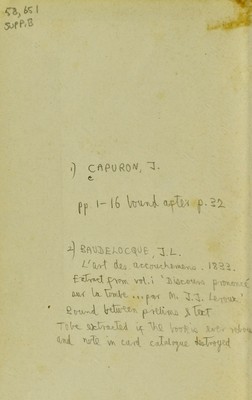 58,651
SUPP.B
1) CAPURON, J.
c
pp 1-16 bound after p.32
2) BAUDELOCQUE, J.L.
L'art des accouchemens. 1833.
Extract from vol. i "Discours prononcé
sur la tombe ... par M. J.J. Leroux.
Bound between prelims & text
To be extracted if the book is ever rebound
and note in card catalogue destroyed